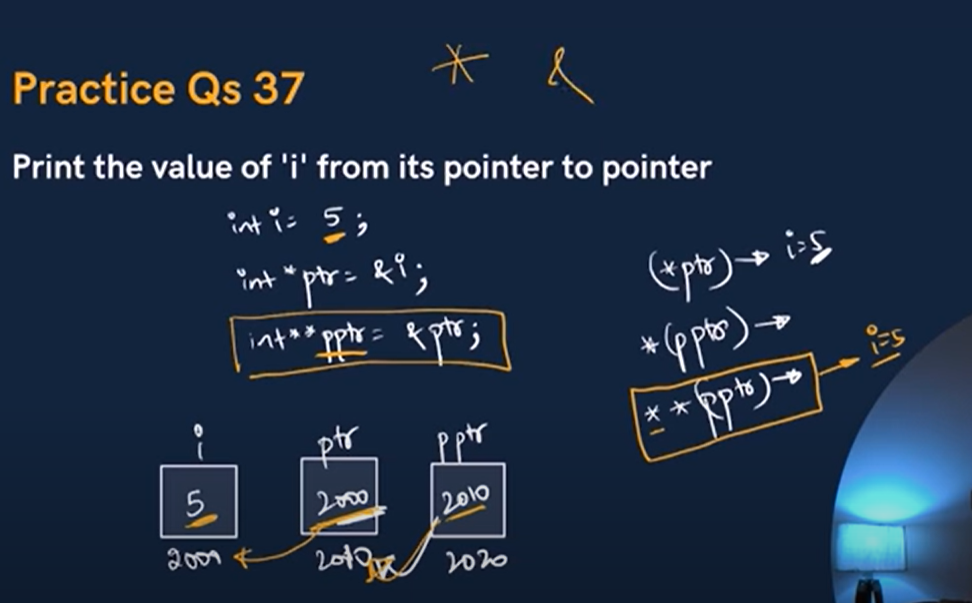 * &
Practice Qs 37
Print the value of 'i' from its pointer to pointer
int i = 5;
int *ptr = &i;
int** pptr = &ptr;
(*ptr) → i=5
*(pptr) →
**(pptr) → i=5
i ptr pptr
5 2000 2010
2000 2010 2020